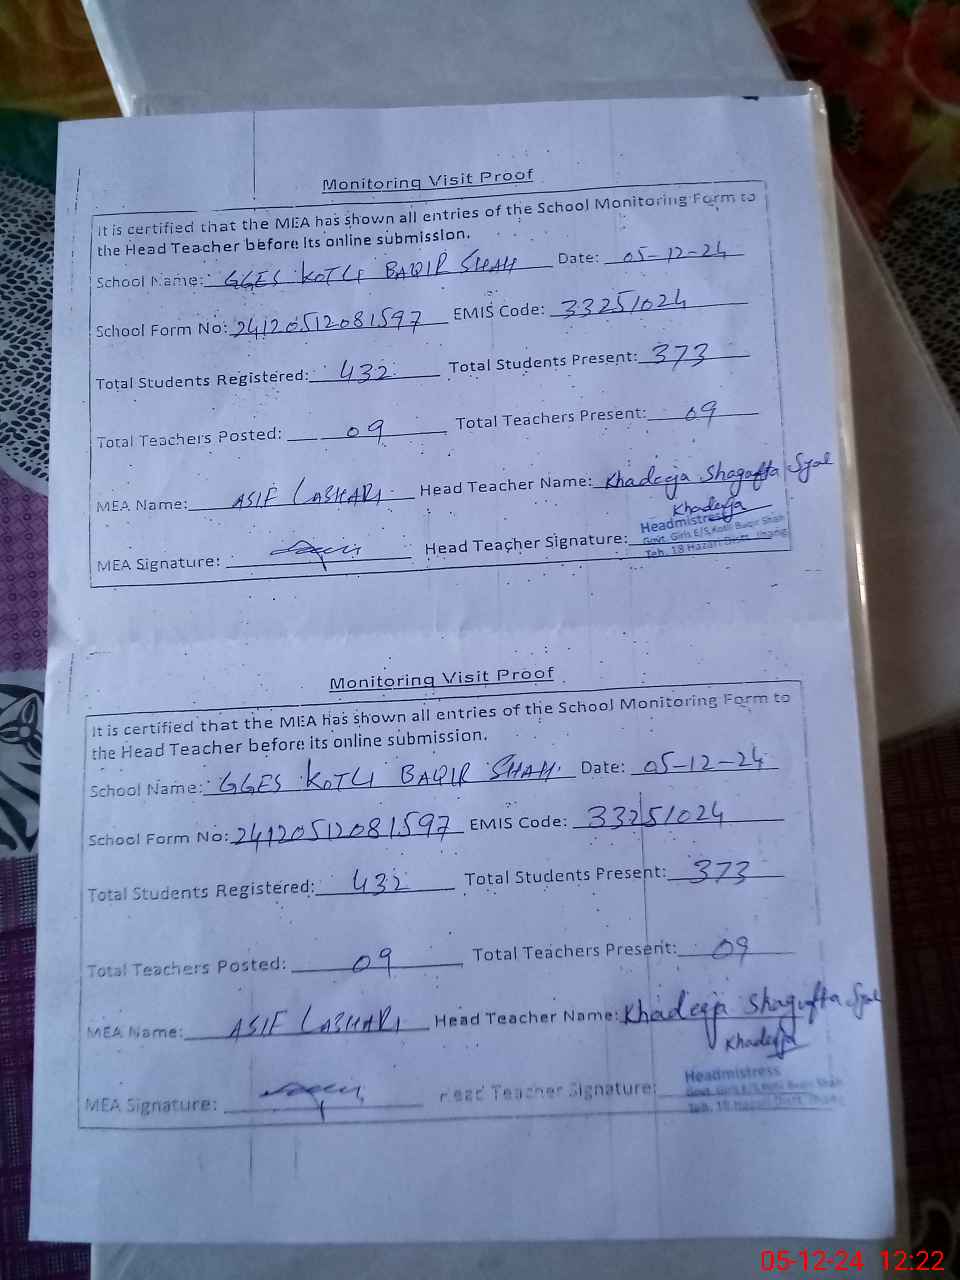 Monitoring Visit Proof
It is certified that the MEA has shown all entries of the School Monitoring Form to
the Head Teacher before its online submission.
School Name: GGES KOTLI BAQIR SHAH Date: 05-12-24
School Form No: 24120512081597 EMIS Code: 33251024
Total Students Registered: 432 Total Students Present: 373
Total Teachers Posted: 09 Total Teachers Present: 09
MEA Name: ASIF LASHARI Head Teacher Name: Khadeeja Shagufta Syal
Khadeeja
MEA Signature: Head Teacher Signature:
Headmistress
Govt. Girls E/S, Kotli Baqir Shah
Teh. 18 Hazari Distt. Jhang
Monitoring Visit Proof
It is certified that the MEA has shown all entries of the School Monitoring Form to
the Head Teacher before its online submission.
School Name: GGES KOTLI BAQIR SHAH. Date: 05-12-24
School Form No: 24120512081597 EMIS Code: 33251024
Total Students Registered: 432 Total Students Present: 373
Total Teachers Posted: 09 Total Teachers Present: 09
MEA Name: ASIF LASHARI Head Teacher Name: Khadeeja Shagufta Syal
Khadeeja
MEA Signature: Head Teacher Signature:
Headmistress
Govt. Girls E/S, Kotli Baqir Shah
Teh. 18 Hazari Distt. Jhang
05-12-24 12:22